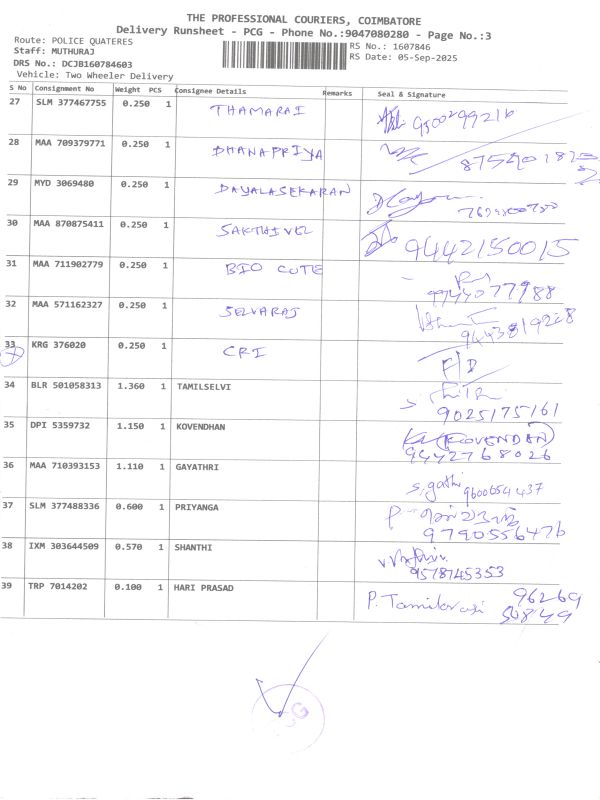 THE PROFESSIONAL COURIERS, COIMBATORE
Delivery Runsheet - PCG - Phone No.:9047080280 - Page No.:3
Route: POLICE QUATERES RS No.: 1607846
Staff: MUTHURAJ RS Date: 05-Sep-2025
DRS No.: DCJB160784603
Vehicle: Two Wheeler Delivery
S No Consignment No Weight PCS Consignee Details Remarks Seal & Signature
27 SLM 377467755 0.250 1 THAMARAI
28 MAA 709379771 0.250 1 DHANAPRIYA
29 MYD 3069480 0.250 1 DAYALASEKARAN
30 MAA 870875411 0.250 1 SAKTHIVEL 9442150015
31 MAA 711902779 0.250 1 BIO CUTE 9744077988
32 MAA 571162327 0.250 1 SELVARAJ 9443819228
33 KRG 376020 0.250 1 CRI F/D
34 BLR 501058313 1.360 1 TAMILSELVI
9025175161
35 DPI 5359732 1.150 1 KOVENDHAN (KOVENDAN)
9442768026
36 MAA 710393153 1.110 1 GAYATHRI
9600654437
37 SLM 377488336 0.600 1 PRIYANGA
9790556476
38 IXM 303644509 0.570 1 SHANTHI
9578745353
39 TRP 7014202 0.100 1 HARI PRASAD P. Tamilarasi 96269
50849